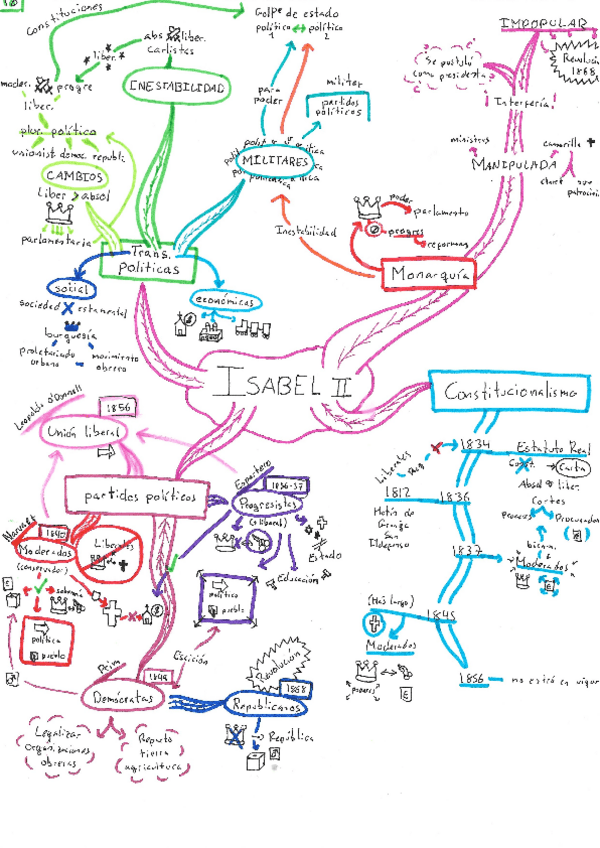 Constituciones
abs liber.
carlistas
Golpe de estado
política 1 ↔ política 2
IMPOPULAR
Revolución 1868
Se postuló
como presidenta
Interfería
ministros
MANIPULADA
camarilla
INESTABILIDAD
liber.
moder. progre
liber.
plur. político
unionist. democ. republi.
CAMBIOS
Liber > absol
parlamentaria
para
poder
militar
partidos
políticos
MILITARES
Inestabilidad
poder
parlamento
progres
reformas
Monarquía
Trans.
políticas
social
sociedad estamental
burguesía
proletariado
urbano
movimiento
obrero
económicas
ISABEL II
Constitucionalismo
1834 Estatuto Real
Const. → Carta
Absol liber.
cortes
Procuradores
bicam.
Liberales
1812 1836
Motín de
Granja
San
Ildefonso
1837
"Moderados"
1845
(Más largo)
Moderados
poderes
1856 no entró en vigor
Leopoldo O'Donnell
1856
Unión liberal
partidos políticos
Espartero
1836-37
Progresistas
(+ liberal)
Estado
Educación
político
pueblo
Narváez
1840
Moderados
(conservador)
Liberales
soberanía
política
pueblo
Prim
1849
Escisión
Demócratas
Legalizar
organizaciones
obreras
Reparto
tierra
agricultura
Revolución
1868
Republicanos
República